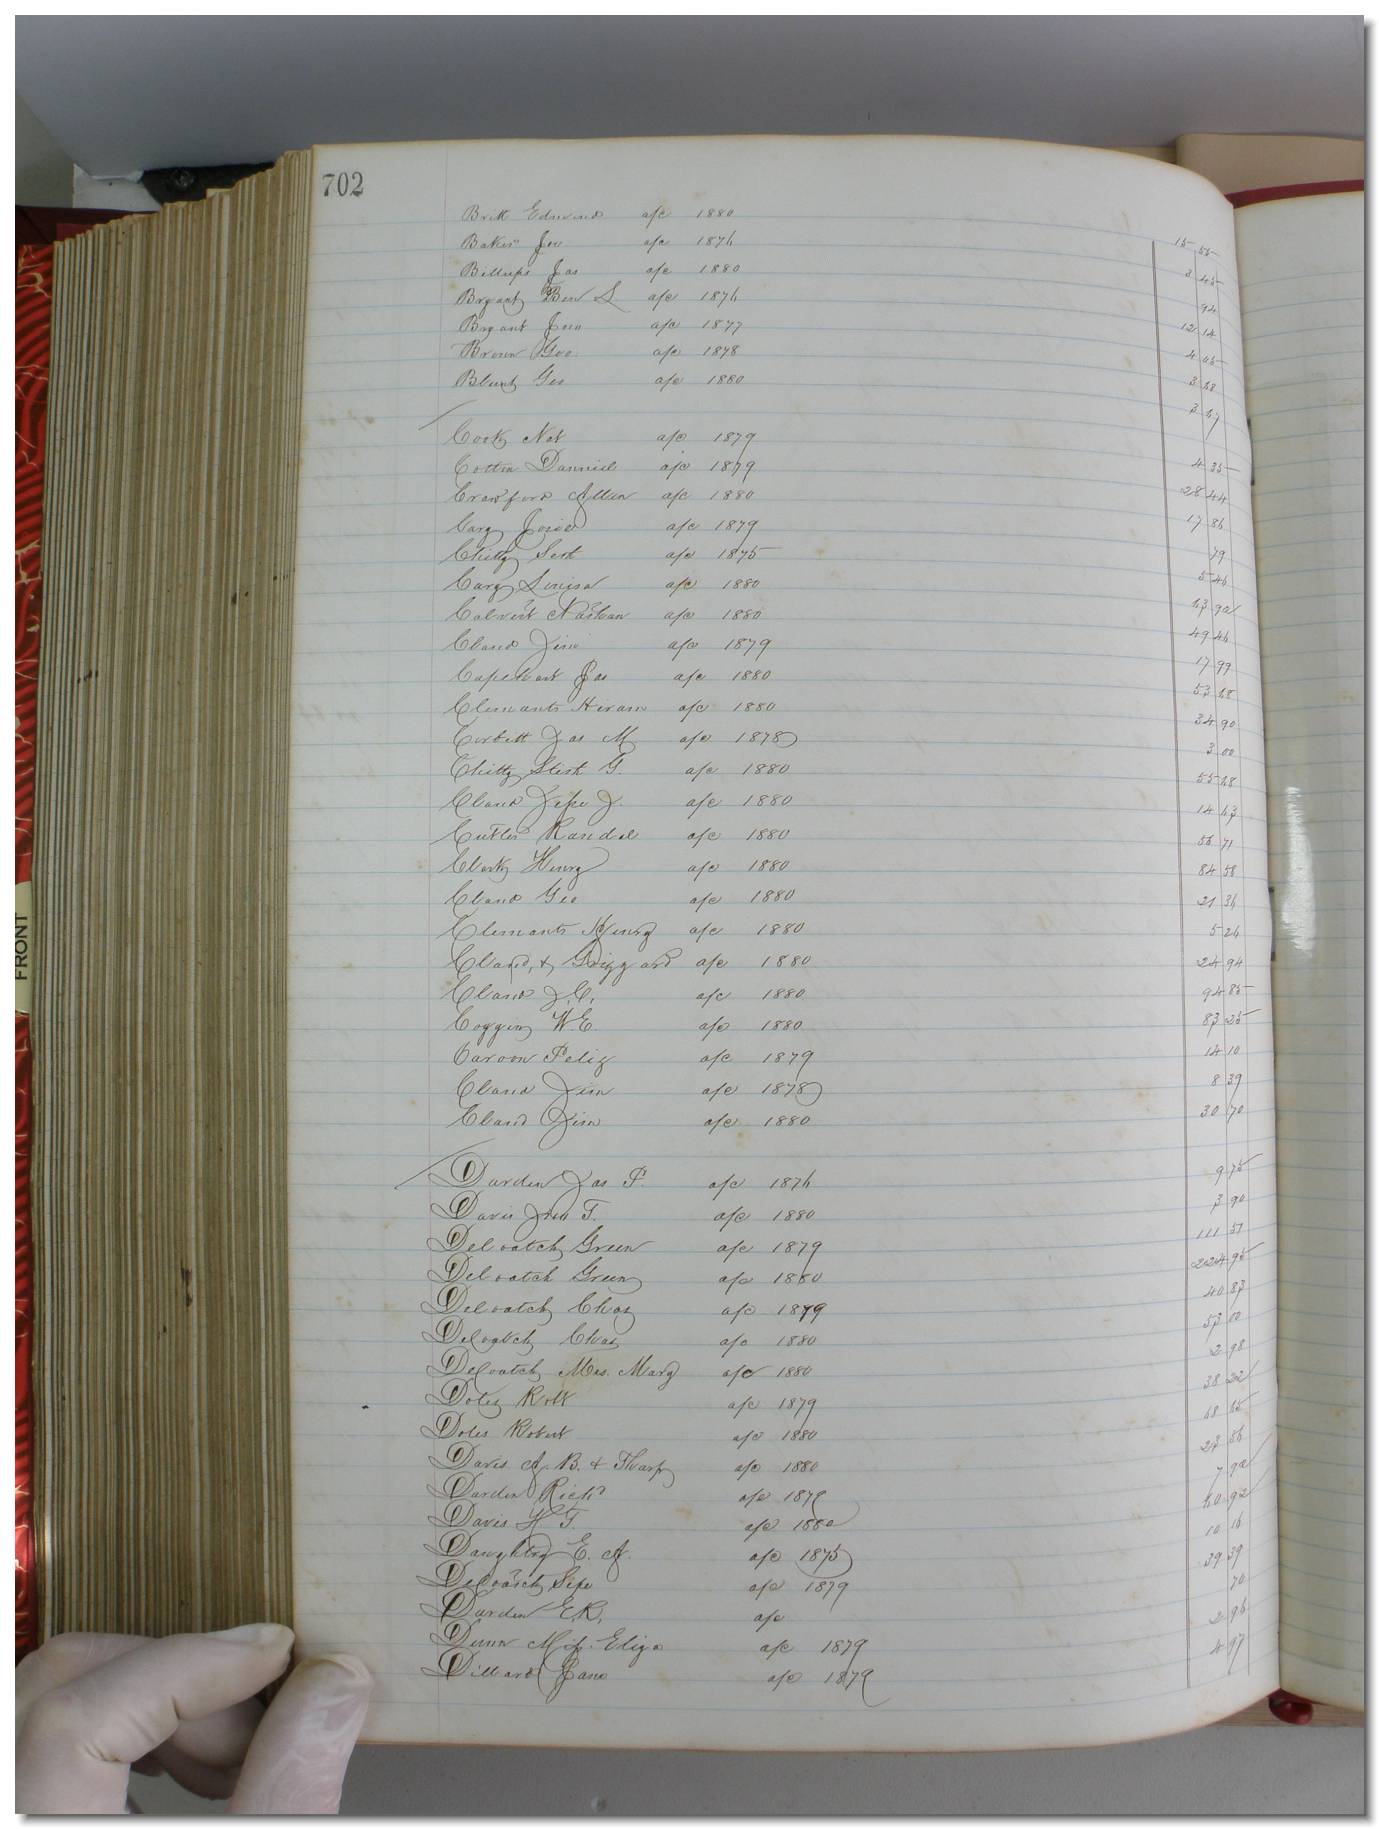 702
Britt Edmund a/c 1880 15 55
Baker Jno a/c 1876 3 45
Billups Jas a/c 1880 94
Bryant Ben L. a/c 1876 12 14
Bryant Jno a/c 1877 4 05
Brown Geo. a/c 1878 3 68
Blunt Geo a/c 1880 3 67
Cook Nat a/c 1879 4 35
Cotten Danniel a/c 1879 28 44
Crawford Allen a/c 1880 17 86
Cary Josie a/c 1879 79
Chitty Sert a/c 1875 5 46
Cary Louisa a/c 1880 63 92
Calvert Nathan a/c 1880 49 46
Cland Jim a/c 1879 17 99
Capehart Jas a/c 1880 53 68
Clemants Hiram a/c 1880 34 90
Corbett Jas M a/c 1878 3 00
Chitty Sterk G. a/c 1880 55 68
Cland Jesse J. a/c 1880 14 63
Cutler Randal a/c 1880 56 71
Clark Henry a/c 1880 84 58
Cland Geo a/c 1880 21 36
Clemants Henry a/c 1880 5 26
Cland, & Griggard a/c 1880 24 94
Cland J.C. a/c 1880 94 85
Coggins W E a/c 1880 83 25
Caroon Feliz a/c 1879 14 10
Cland Jim a/c 1878 8 39
Cland Jim a/c 1880 30 70
Darden Jas P. a/c 1876 9 75
Davis Jno T. a/c 1880 3 90
Deloatch Green a/c 1879 111 57
Deloatch Green a/c 1880 224 95
Deloatch Chas a/c 1879 40 83
Deloatch Chas a/c 1880 53 00
Deloatch Mrs. Mary a/c 1880 2 98
Doles Robt a/c 1879 38 22
Doles Robert a/c 1880 68 65
Davis A. B. & Tharp a/c 1880 23 86
Darden Richd a/c 1879 7 92
Davis H T. a/c 1880 60 92
Daughtry E. A. a/c 1875 10 16
Deloatch Sepe a/c 1879 39 39
Darden E.R. a/c 70
Dunn Miss. Eliza a/c 1879 2 96
Dillard Jane a/c 1879 4 97
FRONT